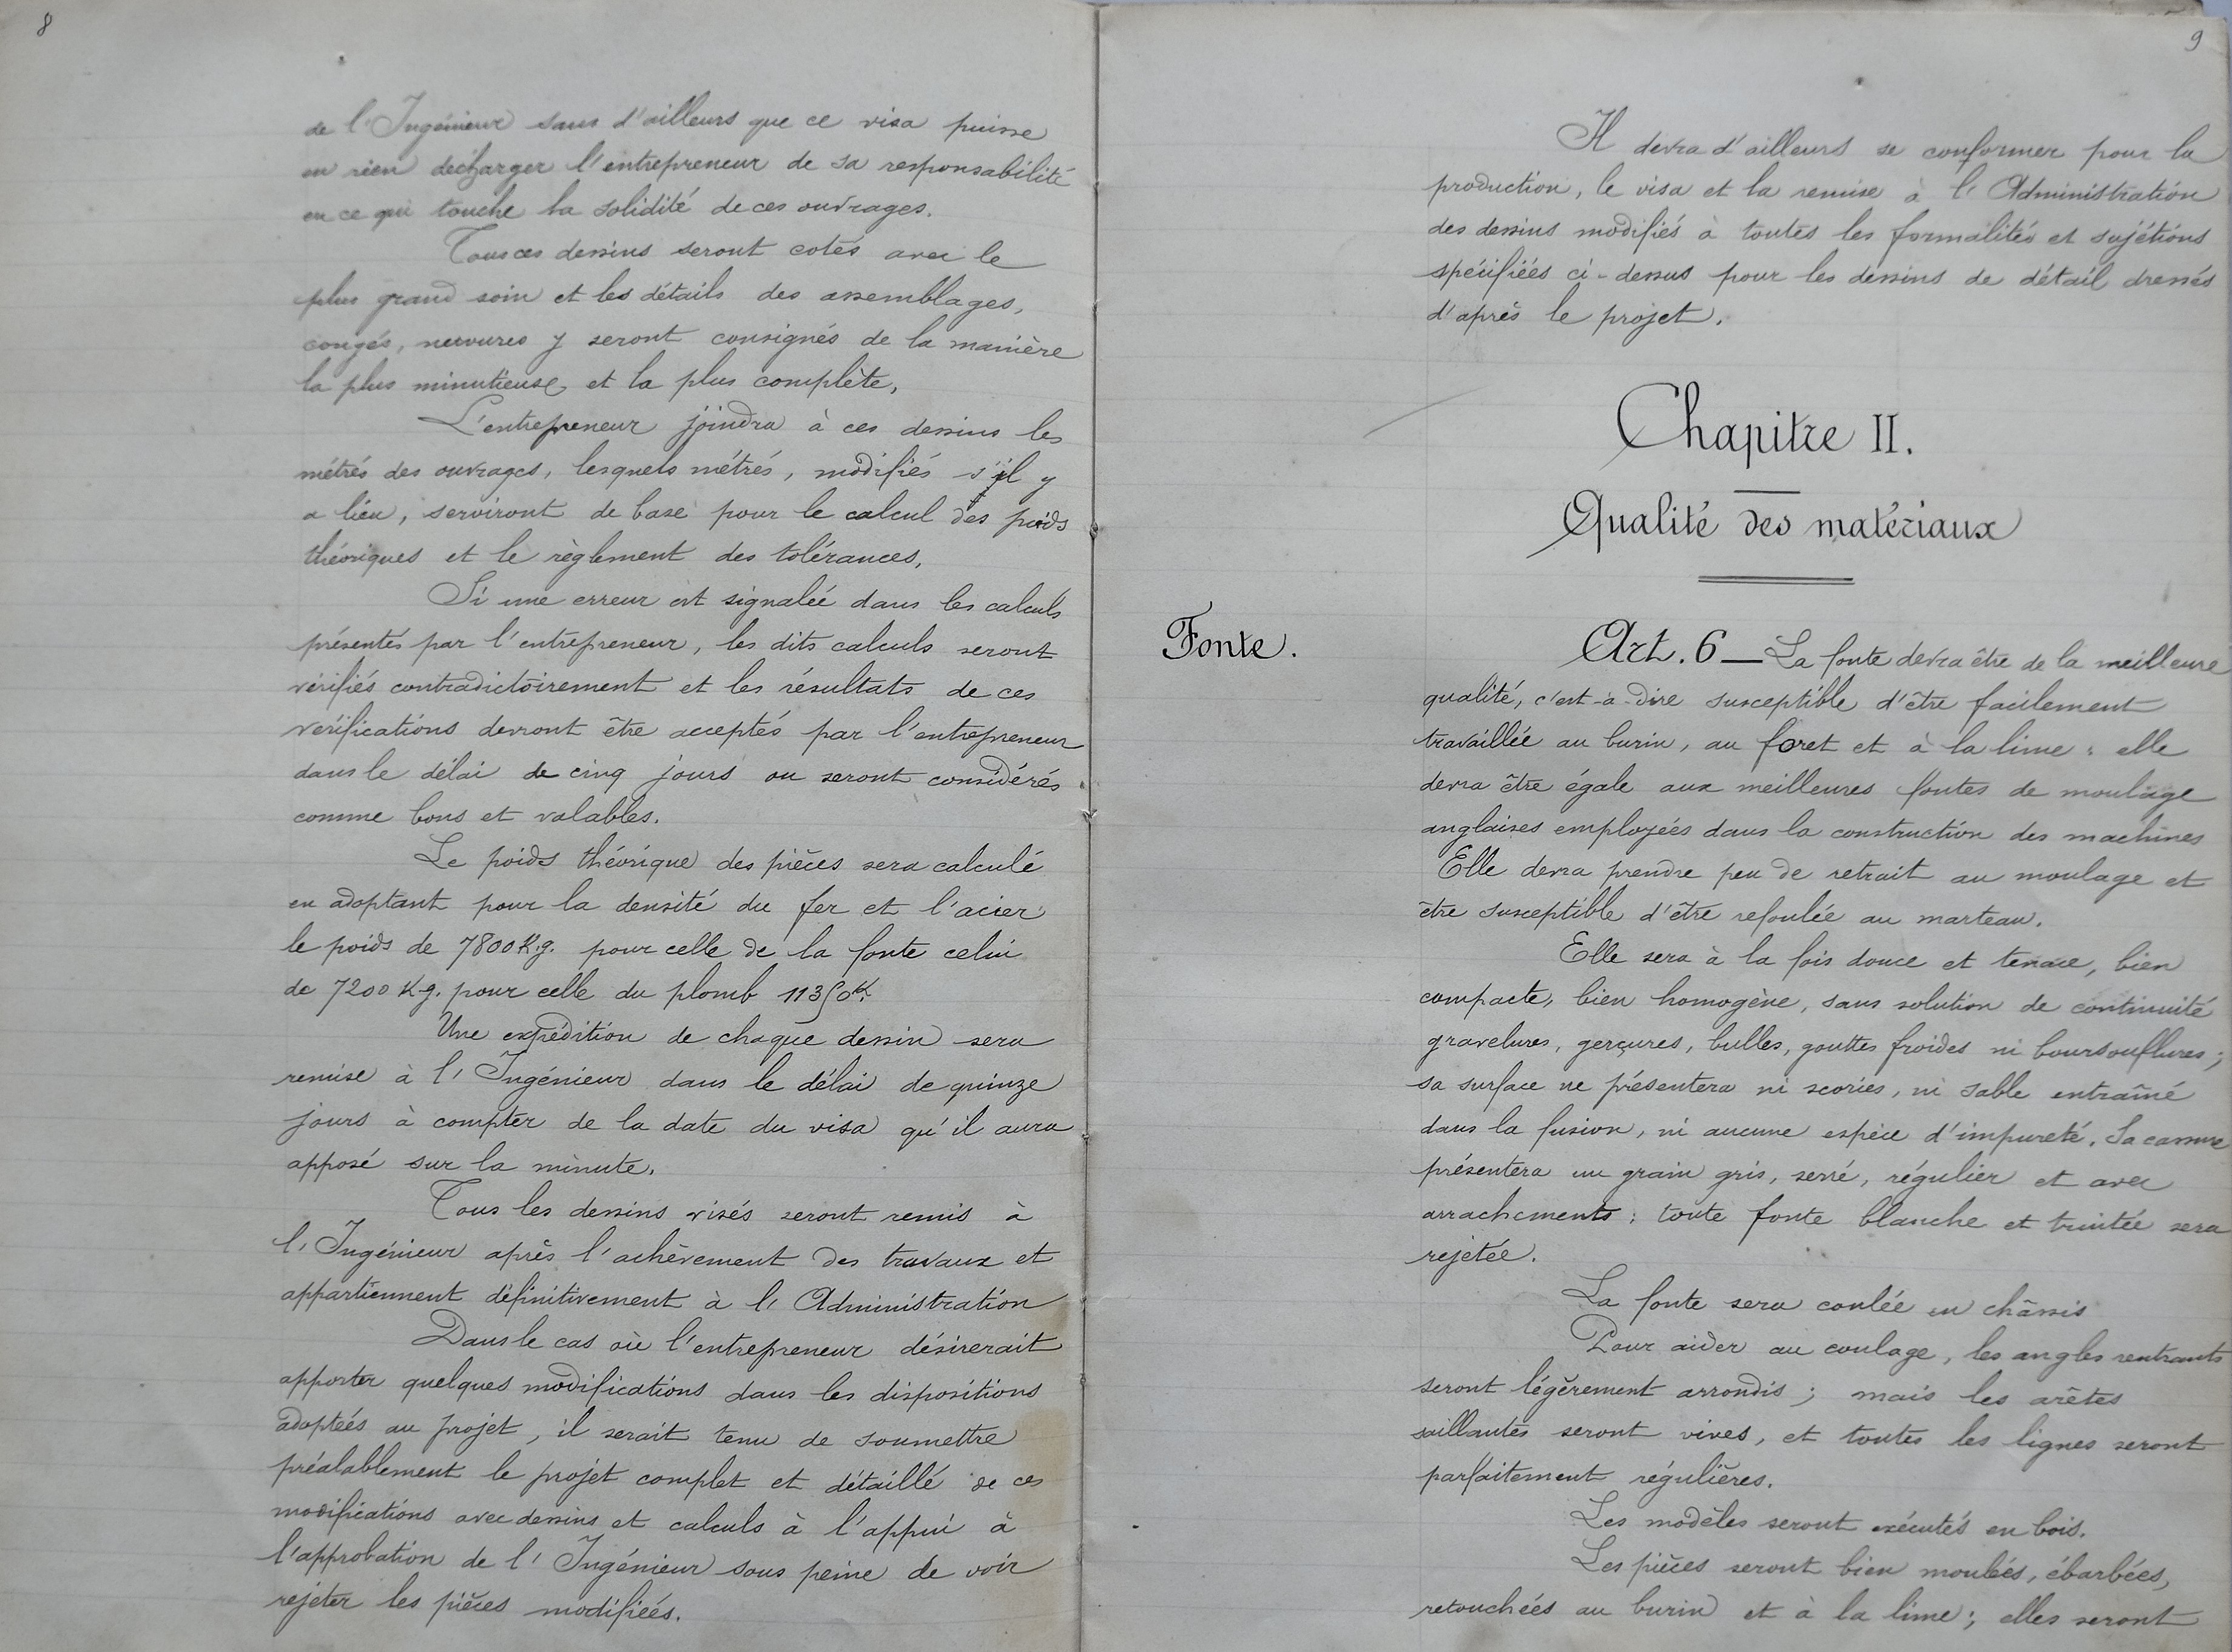 8
de l'Ingénieur sans d'ailleurs que ce visa puisse
en rien décharger l'entrepreneur de sa responsabilité
en ce qui touche la solidité de ces ouvrages.
Tous ces dessins seront cotés avec le
plus grand soin et les détails des assemblages,
congés, nervures y seront consignés de la manière
la plus minutieuse et la plus complète,
L'entrepreneur joindra à ces dessins les
métrés des ouvrages, lesquels métrés, modifiés s'il y
a lieu, serviront de base pour le calcul des poids
théoriques et le règlement des tolérances,
Si une erreur est signalée dans les calculs
présentés par l'entrepreneur, les dits calculs seront
vérifiés contradictoirement et les résultats de ces
vérifications devront être acceptés par l'entrepreneur
dans le délai de cinq jours ou seront considérés
comme bons et valables.
Le poids théorique des pièces sera calculé
en adoptant pour la densité du fer et l'acier
le poids de 7800 K.g. pour celle de la fonte celui
de 7200 K.g. pour celle du plomb 11350 K.
Une expédition de chaque dessin sera
remise à l'Ingénieur dans le délai de quinze
jours à compter de la date du visa qu'il aura
apposé sur la minute.
Tous les dessins visés seront remis à
l'Ingénieur après l'achèvement des travaux et
appartiennent définitivement à l'Administration
Dans le cas où l'entrepreneur désirerait
apporter quelques modifications dans les dispositions
adoptées au projet, il serait tenu de soumettre
préalablement le projet complet et détaillé de ces
modifications avec dessins et calculs à l'appui à
l'approbation de l'Ingénieur sous peine de voir
rejeter les pièces modifiées.
9
Il devra d'ailleurs se conformer pour la
production, le visa et la remise à l'Administration
des dessins modifiés à toutes les formalités et sujétions
spécifiées ci-dessus pour les dessins de détail dressés
d'après le projet.
Chapitre II.
Qualité des matériaux
Fonte.
Art. 6 — La fonte devra être de la meilleure
qualité, c'est-à-dire susceptible d'être facilement
travaillée au burin, au foret et à la lime : elle
devra être égale aux meilleures fontes de moulage
anglaises employées dans la construction des machines
Elle devra prendre peu de retrait au moulage et
être susceptible d'être refoulée au marteau.
Elle sera à la fois douce et tenace, bien
compacte, bien homogène, sans solution de continuité
gravelures, gerçures, bulles, gouttes froides ni boursouflures ;
sa surface ne présentera ni scories, ni sable entraîné
dans la fusion, ni aucune espèce d'impureté. Sa cassure
présentera un grain gris, serré, régulier et avec
arrachements : toute fonte blanche et truitée sera
rejetée.
La fonte sera coulée en châssis
Pour aider au coulage, les angles rentrants
seront légèrement arrondis ; mais les arêtes
saillantes seront vives, et toutes les lignes seront
parfaitement régulières.
Les modèles seront exécutés en bois.
Les pièces seront bien moulées, ébarbées,
retouchées au burin et à la lime ; elles seront